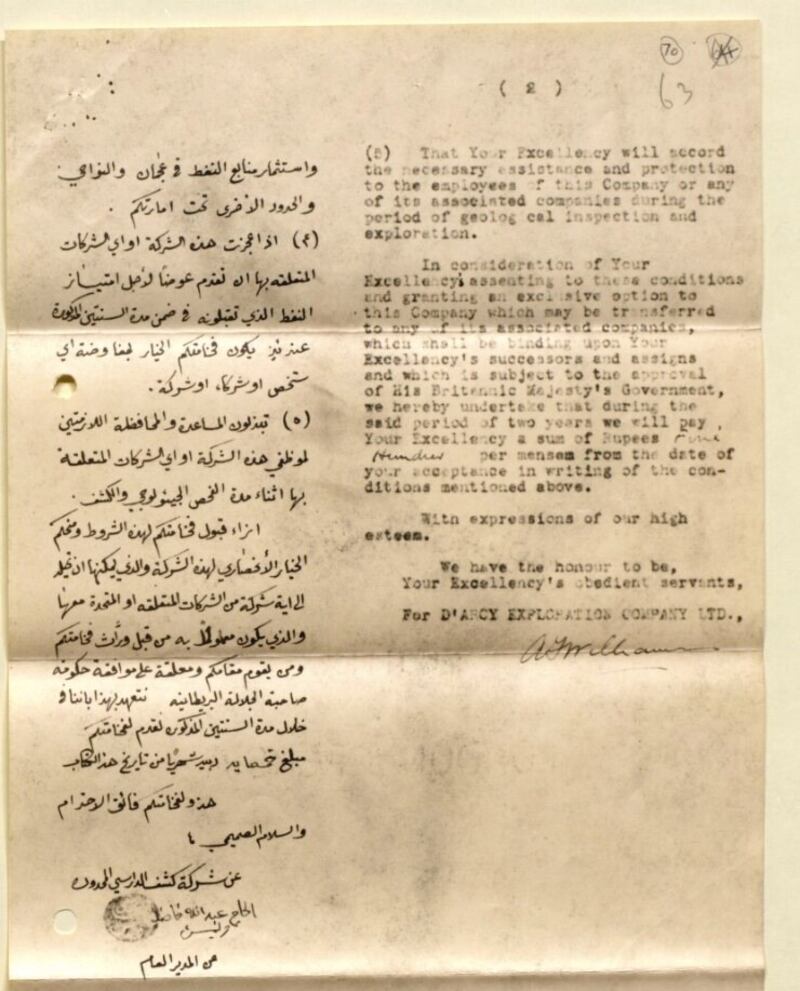 70
63
( 2 )
واستثمار منابع النفط في عجمان والنواحي
والحدود الاخرى تحت امارتكم .
(٤) اذا عجزت هذه الشركة او اي الشركات
المتعلقه بها ان تقدم عوضًا لأجل امتياز
النفط الذي تقبلونه في ضمن مدة السنتين المذكورة
عندئذ يكون فخامتكم الخيار لمفاوضة اي
شخص او شركاء، او شركة.
(٥) تبذلون المساعدة والمحافظة اللازمتين
لموظفي هذه الشركة او اي الشركات المتعلقة
بها اثناء مدة الفحص الجيولوجي والكشف .
ازاء قبول فخامتكم لهذه الشروط ومنحكم
الخيار الأنحصاري لهذه الشركة والذي يمكنها ان
الى اية شركة من الشركات المتعلقه او المتحدة معها
والذي يكون به من قبل ورّاث فخامتكم
ومن يقوم مقامكم ومعلقة على موافقة حكومة
صاحبة الجلالة البريطانيه نتعهد بهذا باننا في
خلال مدة السنتين المذكوره نقدم لفخامتكم
مبلغ شهريًا من تاريخ هذا الكتاب
هذا ولفخامتكم فائق الاحترام
والسلام الصميمي
عن شركة كشف الدارسي المحدودة
الحاج عبدالله
من المدير العام
(5) That Your Excellency will accord
the necessary assistance and protection
to the employees of this Company or any
of its associated companies during the
period of geological inspection and
exploration.
In consideration of Your
Excellency's assenting to these conditions
and granting an exclusive option to
this Company which may be transferred
to any of its associated companies,
which shall be binding upon Your
Excellency's successors and assigns
and which is subject to the approval
of His Britannic Majesty's Government,
we hereby undertake that during the
said period of two years we will pay
Your Excellency a sum of Rupees
Hundred per mensem from the date of
your acceptance in writing of the con-
ditions mentioned above.
With expressions of our high
esteem.
We have the honour to be,
Your Excellency's obedient servants,
For D'ARCY EXPLORATION COMPANY LTD.,